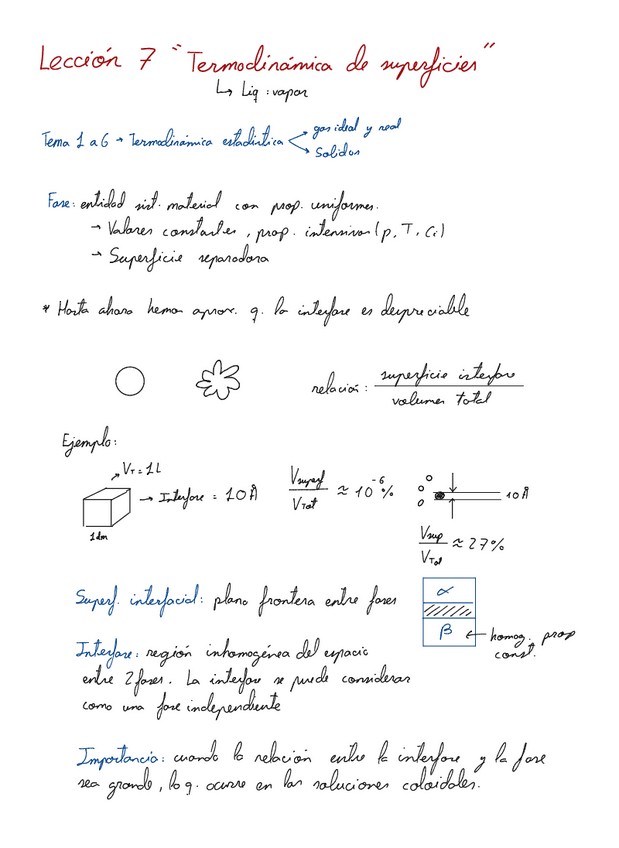 Lección 7 "Termodinámica de superficies"
↳ Liq : vapor
Tema 1 a 6 → Termodinámica estadística
gas ideal y real
Solidos
Fase: entidad sist. material con prop. uniformes.
→ Valores constantes, prop. intensivas (p, T, Ci)
→ Superficie separadora
* Hasta ahora hemos aprox. q. la interfase es despreciable
relación: superficie interfase
volumen total
Ejemplo:
VT = 1 L
→ Interfase = 10 Å
1 dm
Vsuperf / VTot ≈ 10⁻⁶ %
10 Å
Vsup / VTot ≈ 27 %
Superf. interfacial: plano frontera entre fases
α
β ← homog. prop
const.
Interfase: región inhomogénea del espacio
entre 2 fases. La interfase se puede considerar
como una fase independiente
Importancia: cuando la relación entre la interfase y la fase
sea grande, lo q. ocurre en las soluciones coloidales.